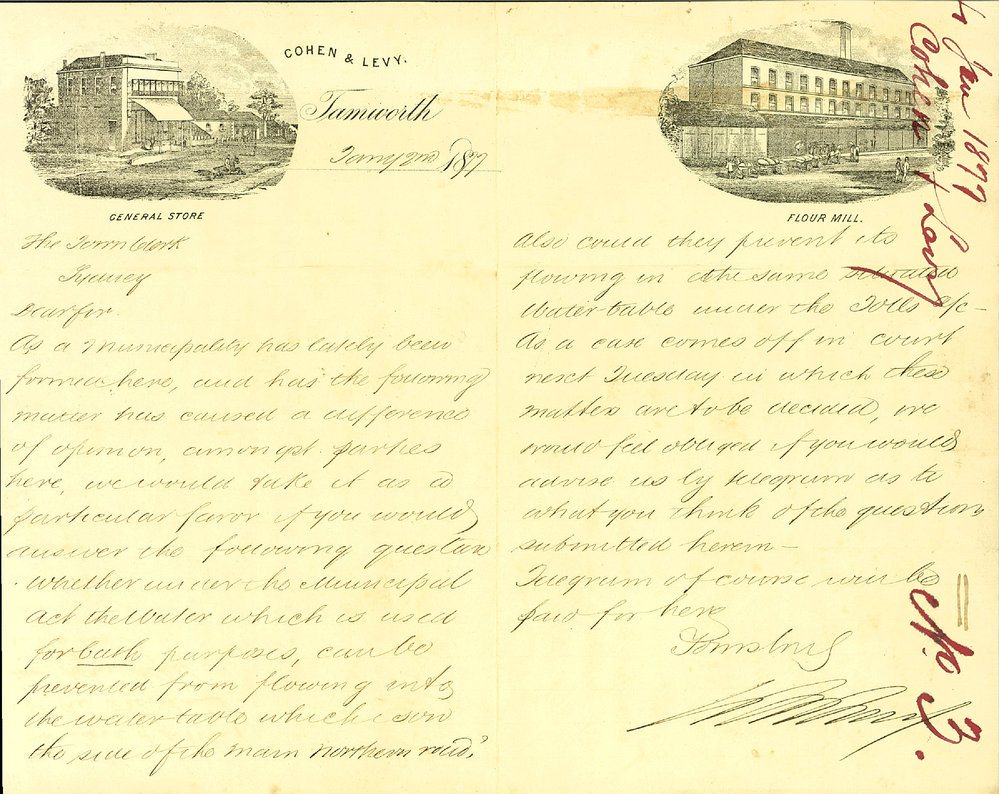 COHEN & LEVY.
Tamworth
Jany 2nd 1877
GENERAL STORE
FLOUR MILL.
The Town Clerk
Sydney
Dear Sir.
As a Municipality has lately been
formed here, and has the following
matter has caused a difference
of opinion, amongst parties
here, we would take it as a
particular favor if you would
answer the following question
. whether under the Municipal
Act the Water which is used
for bath purposes, can be
prevented from flowing into
the water table which is on
the side of the main northern road,
Also could they prevent its
flowing in the same
Water table under the Tolls &c –
As a case comes off in court
next Tuesday in which these
matters are to be decided, we
would feel obliged if you would
advise us by telegram as to
what you think of the question
submitted herein –
Telegram of course will be
paid for here
Yours truly
4 Jan 1877
Cohen & Levy
No 3.